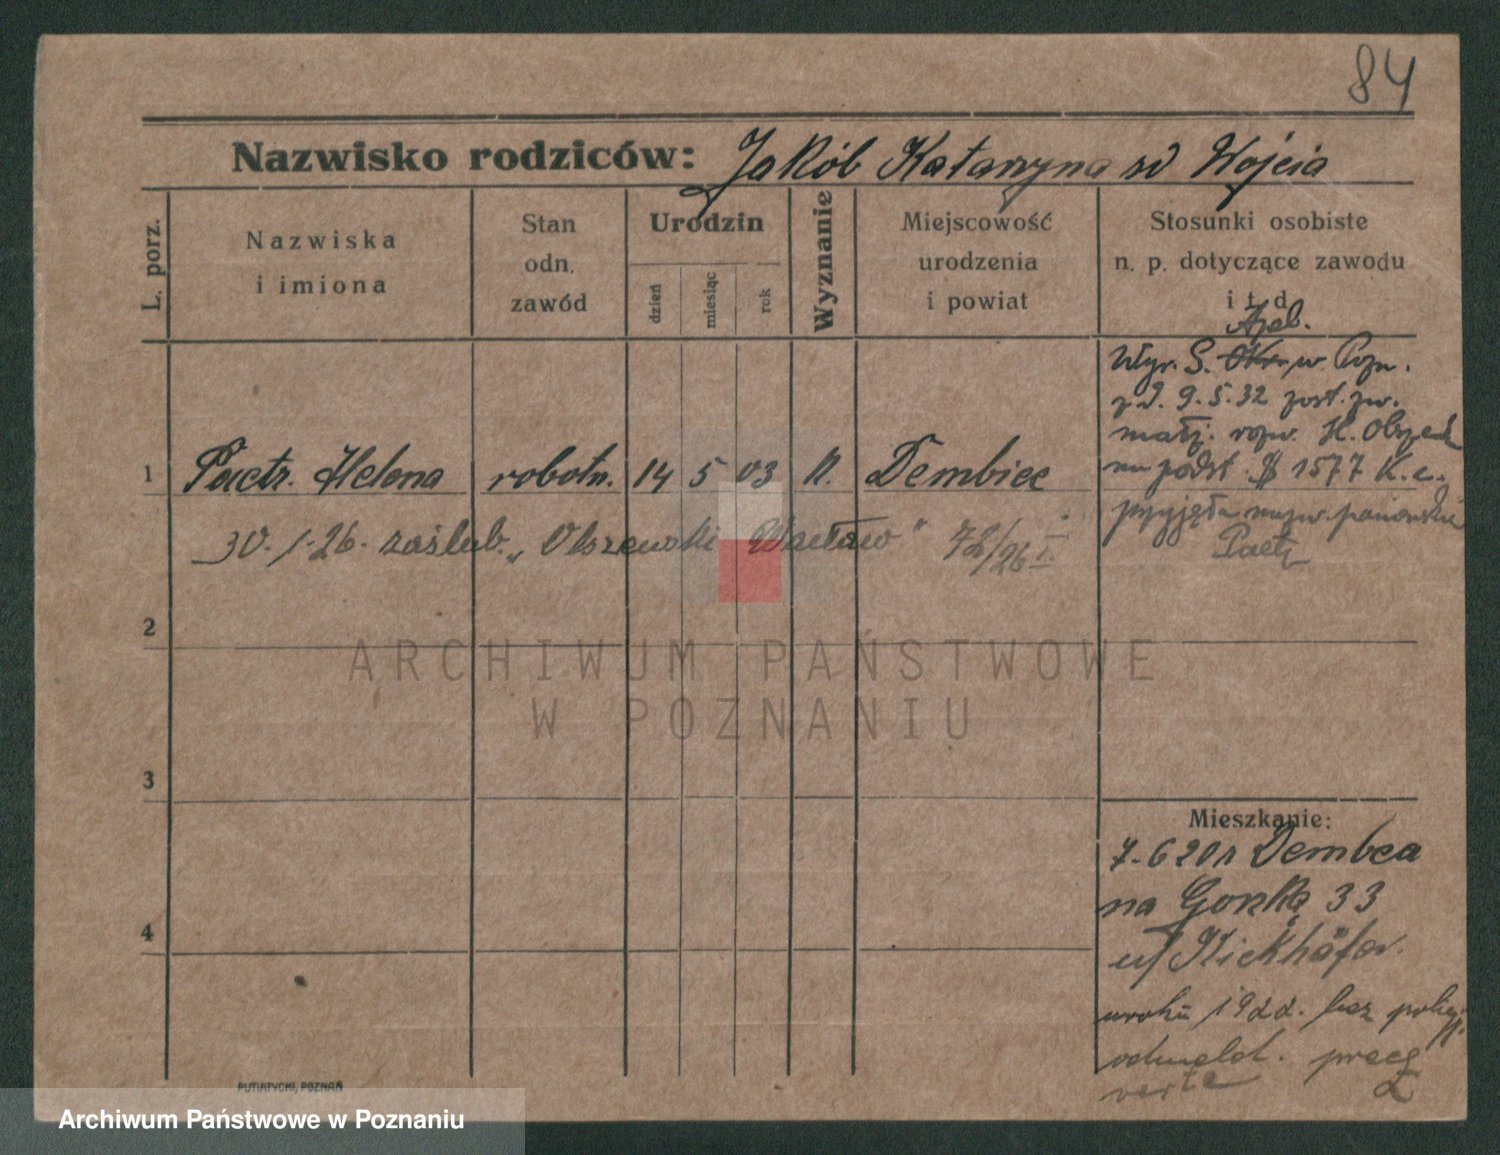 84
Nazwisko rodziców: Jakób Katarzyna sd Wojcia
L. porz.
Nazwiska
i imiona
Stan
odn.
zawód
Urodzin
dzień
miesiąc
rok
Wyznanie
Miejscowość
urodzenia
i powiat
Stosunki osobiste
n. p. dotyczące zawodu
i t. d.
Apel.
Wyr. S. Okr. w Pozn.
z d. 9.5.32 zost. zw.
małż. rozw. H. Olszewsk
na podst. § 1577 K.c.
przyjęła nazw. panieńskie
Paetz
1 Paetz. Helena robotn. 14 5 03 K. Dembiec
30. 1. 26. zaślub. „Olszewski Wacław" 72/26 I.
2
ARCHIWUM PAŃSTWOWE
W POZNANIU
3
4
Mieszkanie:
7. 6 20 r Dembca
na Gorską 33
u/
w roku 1922. bez policyj.
odmeld. pracę
verte
PUTIATYCKI, POZNAŃ
Archiwum Państwowe w Poznaniu